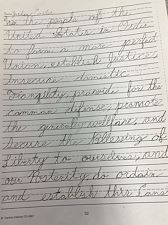 We the people of the
United States in Order
to form a more perfect
Union, establish Justice,
insecure domestic
Tranquility, provide for the
common defense, promote
the general welfare, and
secure the Blessing of
Liberty to ourselves, and
our Posterity do ordain
and establish this Cons